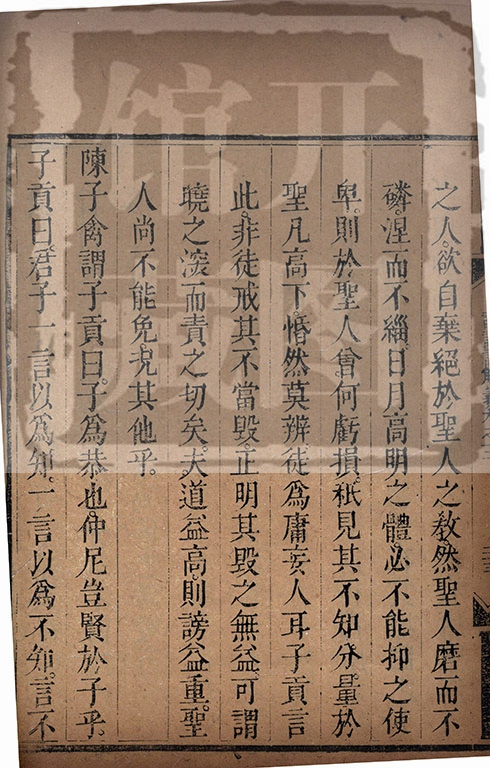 之人。欲自棄絕於聖人之教。然聖人磨而不
磷。涅而不緇。日月高明之體。必不能抑之使
卑。則於聖人曾何虧損。秖見其不知分量。於
聖凡高下。惛然莫辨。徒為庸妄人耳。子貢言
此。非徒戒其不當毀。正明其毀之無益。可謂
曉之深而責之切矣。夫道益高。則謗益重。聖
人尚不能免。况其他乎。
陳子禽謂子貢曰。子為恭也。仲尼豈賢於子乎。
子貢曰。君子一言以為知。一言以為不知。言不